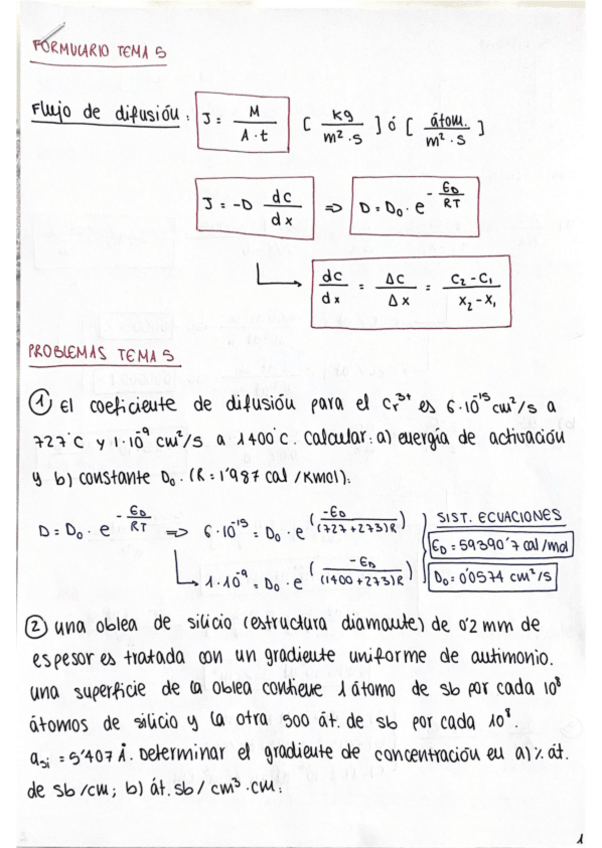 FORMULARIO TEMA 5
Flujo de difusión: J = M / A·t [kg / m²·s] ó [átom. / m²·s]
J = -D dc/dx ⇒ D = D₀·e^(-ED/RT)
dc/dx = Δc/Δx = C₂-C₁ / X₂-X₁
PROBLEMAS TEMA 5
① El coeficiente de difusión para el Cr³⁺ es 6·10⁻¹⁵ cm²/s a
727°C y 1·10⁻⁹ cm²/s a 1400°C. Calcular: a) energía de activación
y b) constante D₀. (R = 1'987 cal/Kmol).
D = D₀·e^(-ED/RT) ⇒ 6·10⁻¹⁵ = D₀·e^(-ED/(727+273)R) SIST. ECUACIONES
ED = 59390'7 cal/mol
1·10⁻⁹ = D₀·e^(-ED/(1400+273)R) D₀ = 0'0574 cm²/s
② una oblea de silicio (estructura diamante) de 0'2 mm de
espesor es tratada con un gradiente uniforme de antimonio.
una superficie de la oblea contiene 1 átomo de sb por cada 10⁸
átomos de silicio y la otra 500 át. de sb por cada 10⁸.
aSi = 5'407 Å. Determinar el gradiente de concentración en a) % át.
de sb/cm; b) át. sb/cm³·cm:
1